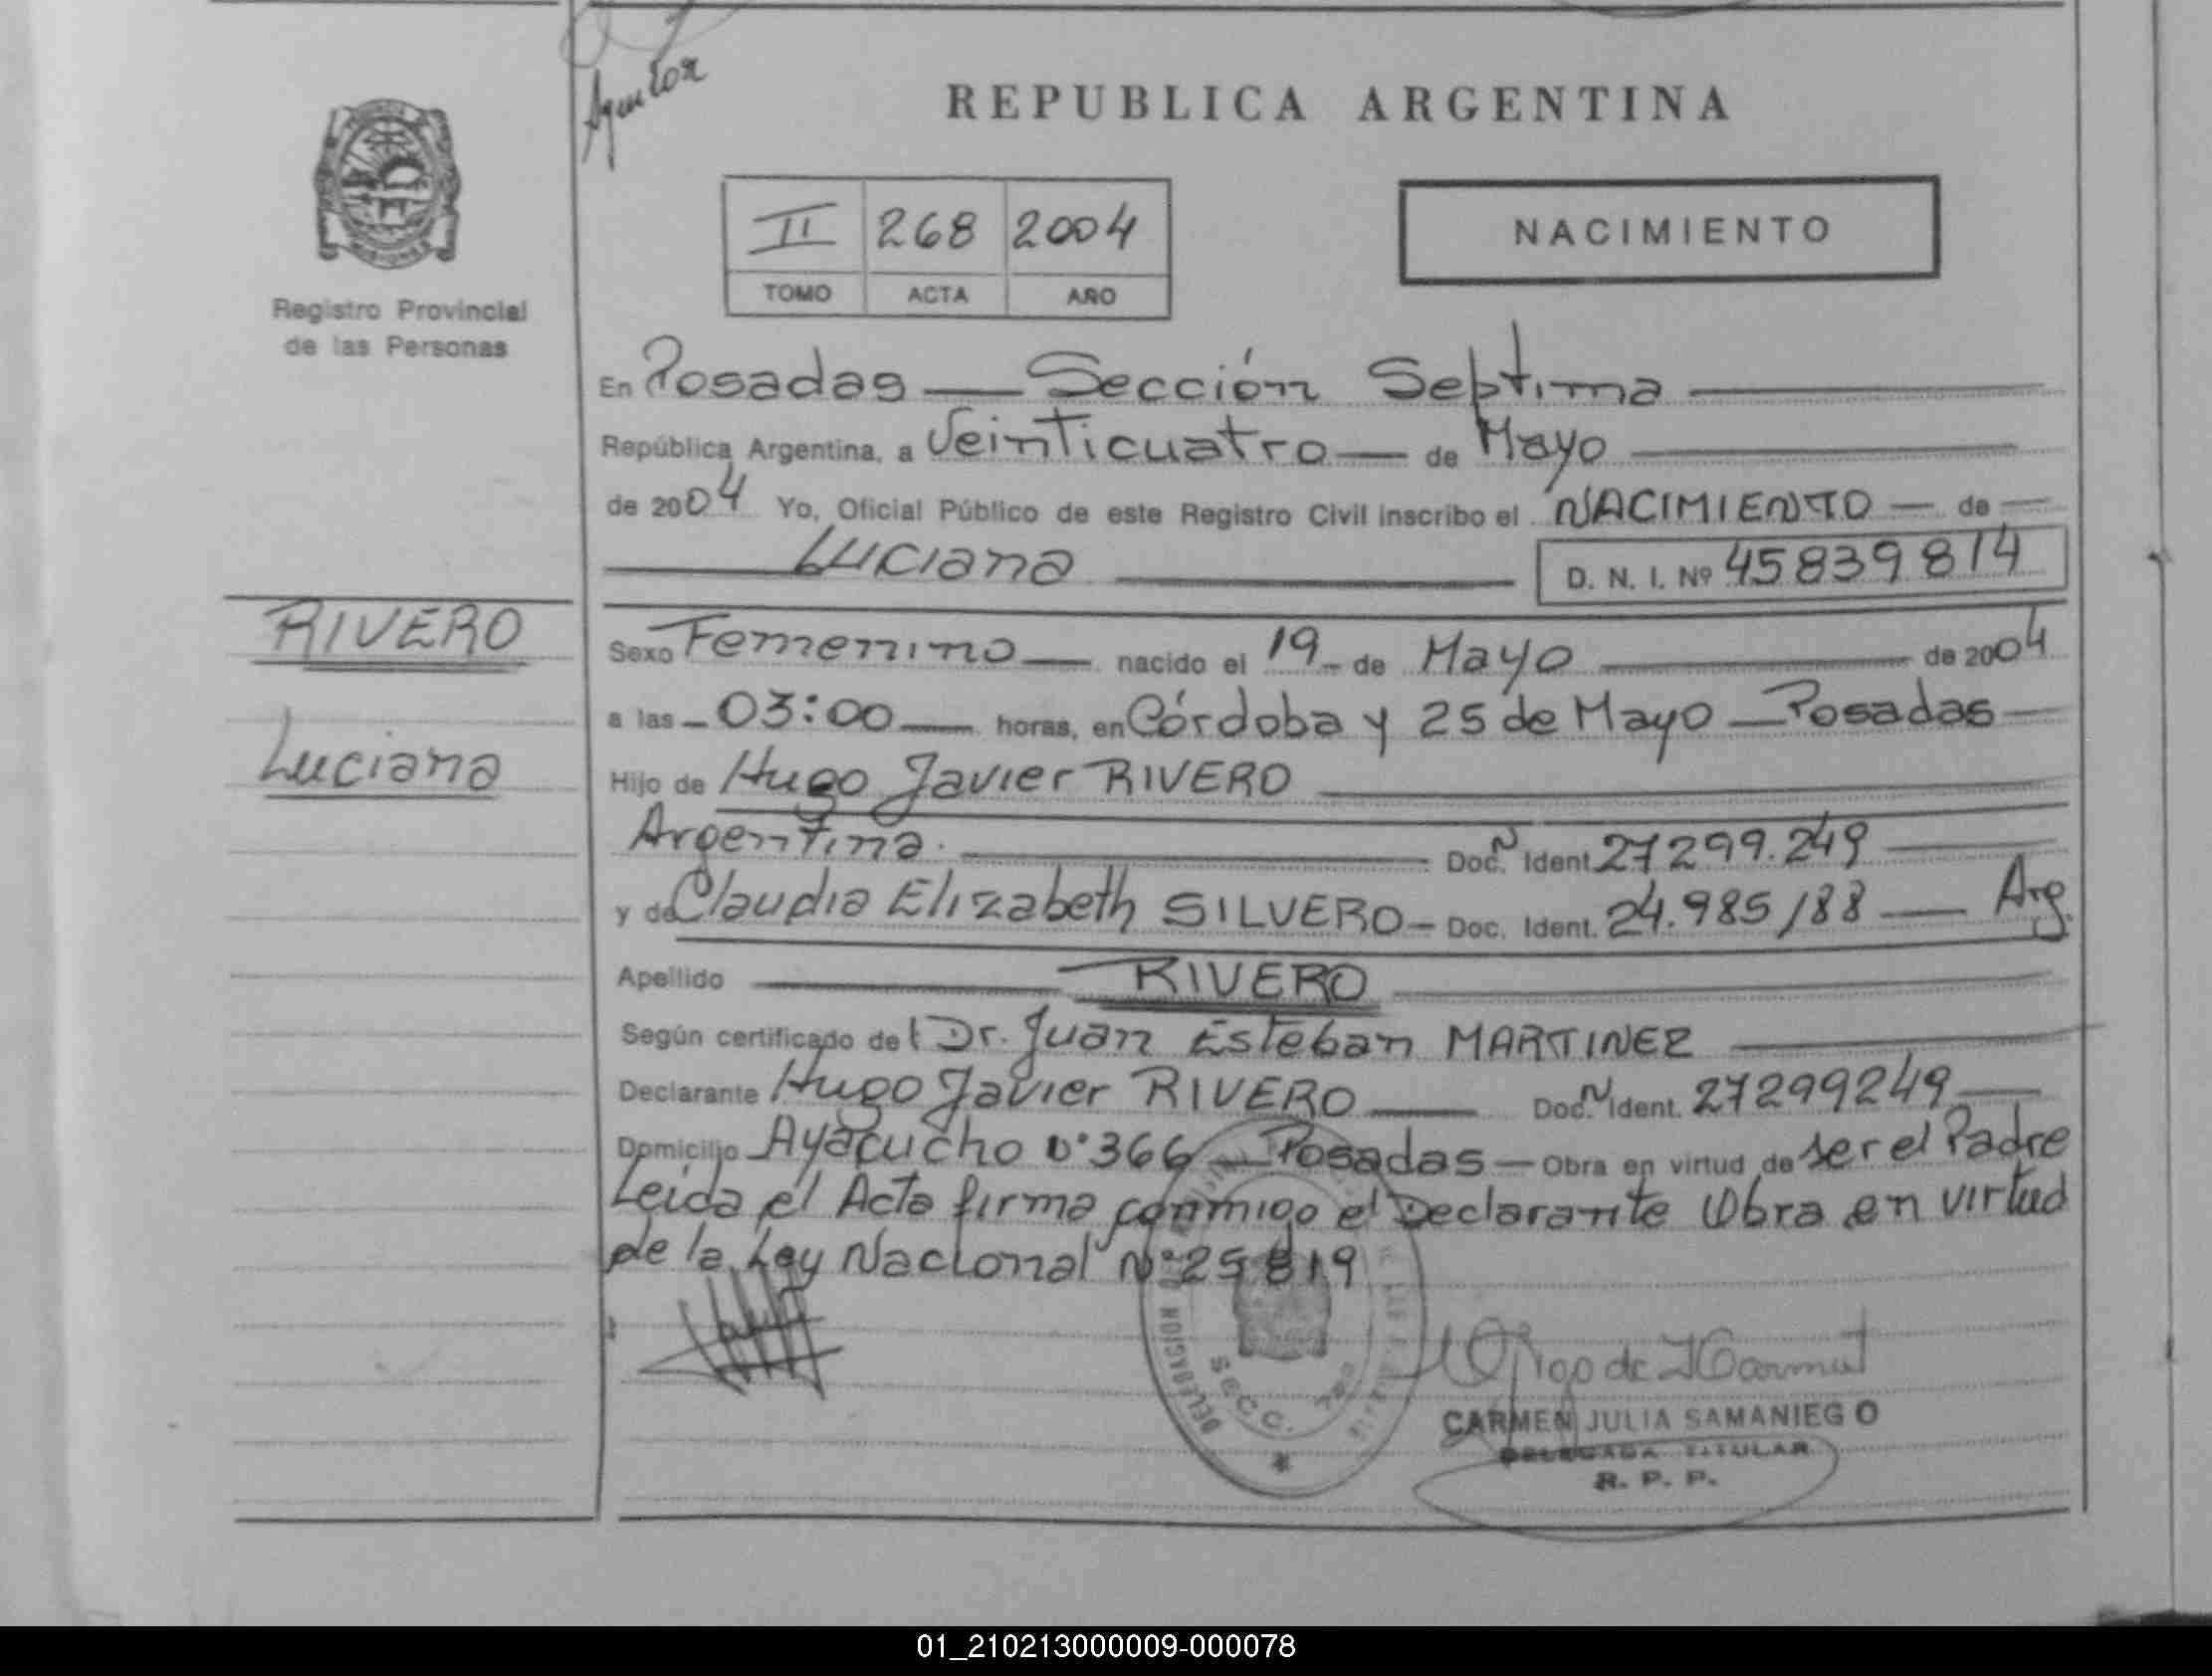 Aguilar
REPUBLICA ARGENTINA
II 268 2004
TOMO ACTA AÑO
NACIMIENTO
Registro Provincial
de las Personas
En Posadas — Sección Septima
República Argentina, a Veinticuatro — de Mayo
de 2004 Yo, Oficial Público de este Registro Civil inscribo el NACIMIENTO — de —
Luciana D. N. I. Nº 45839814
RIVERO
Luciana
Sexo Femenino — nacido el 19 - de Mayo — de 2004
a las - 03:00 — horas, en Córdoba y 25 de Mayo — Posadas —
Hijo de Hugo Javier RIVERO
Argentina. Doc. Ident. 27299.249
y de Claudia Elizabeth SILVERO — Doc. Ident. 24.985188 — Arg.
Apellido RIVERO
Según certificado del Dr. Juan Esteban MARTINEZ
Declarante Hugo Javier RIVERO — Doc. Ident. 27299249 —
Domicilio Ayacucho Nº 366 — Posadas — Obra en virtud de ser el Padre
Leida el Acta firma conmigo el Declarante Obra en virtud
de la Ley Nacional Nº 25819
DELEGACION
SECC. 7ma
CARMEN JULIA SAMANIEGO
DELEGADA TITULAR
R. P. P.
01_210213000009-000078